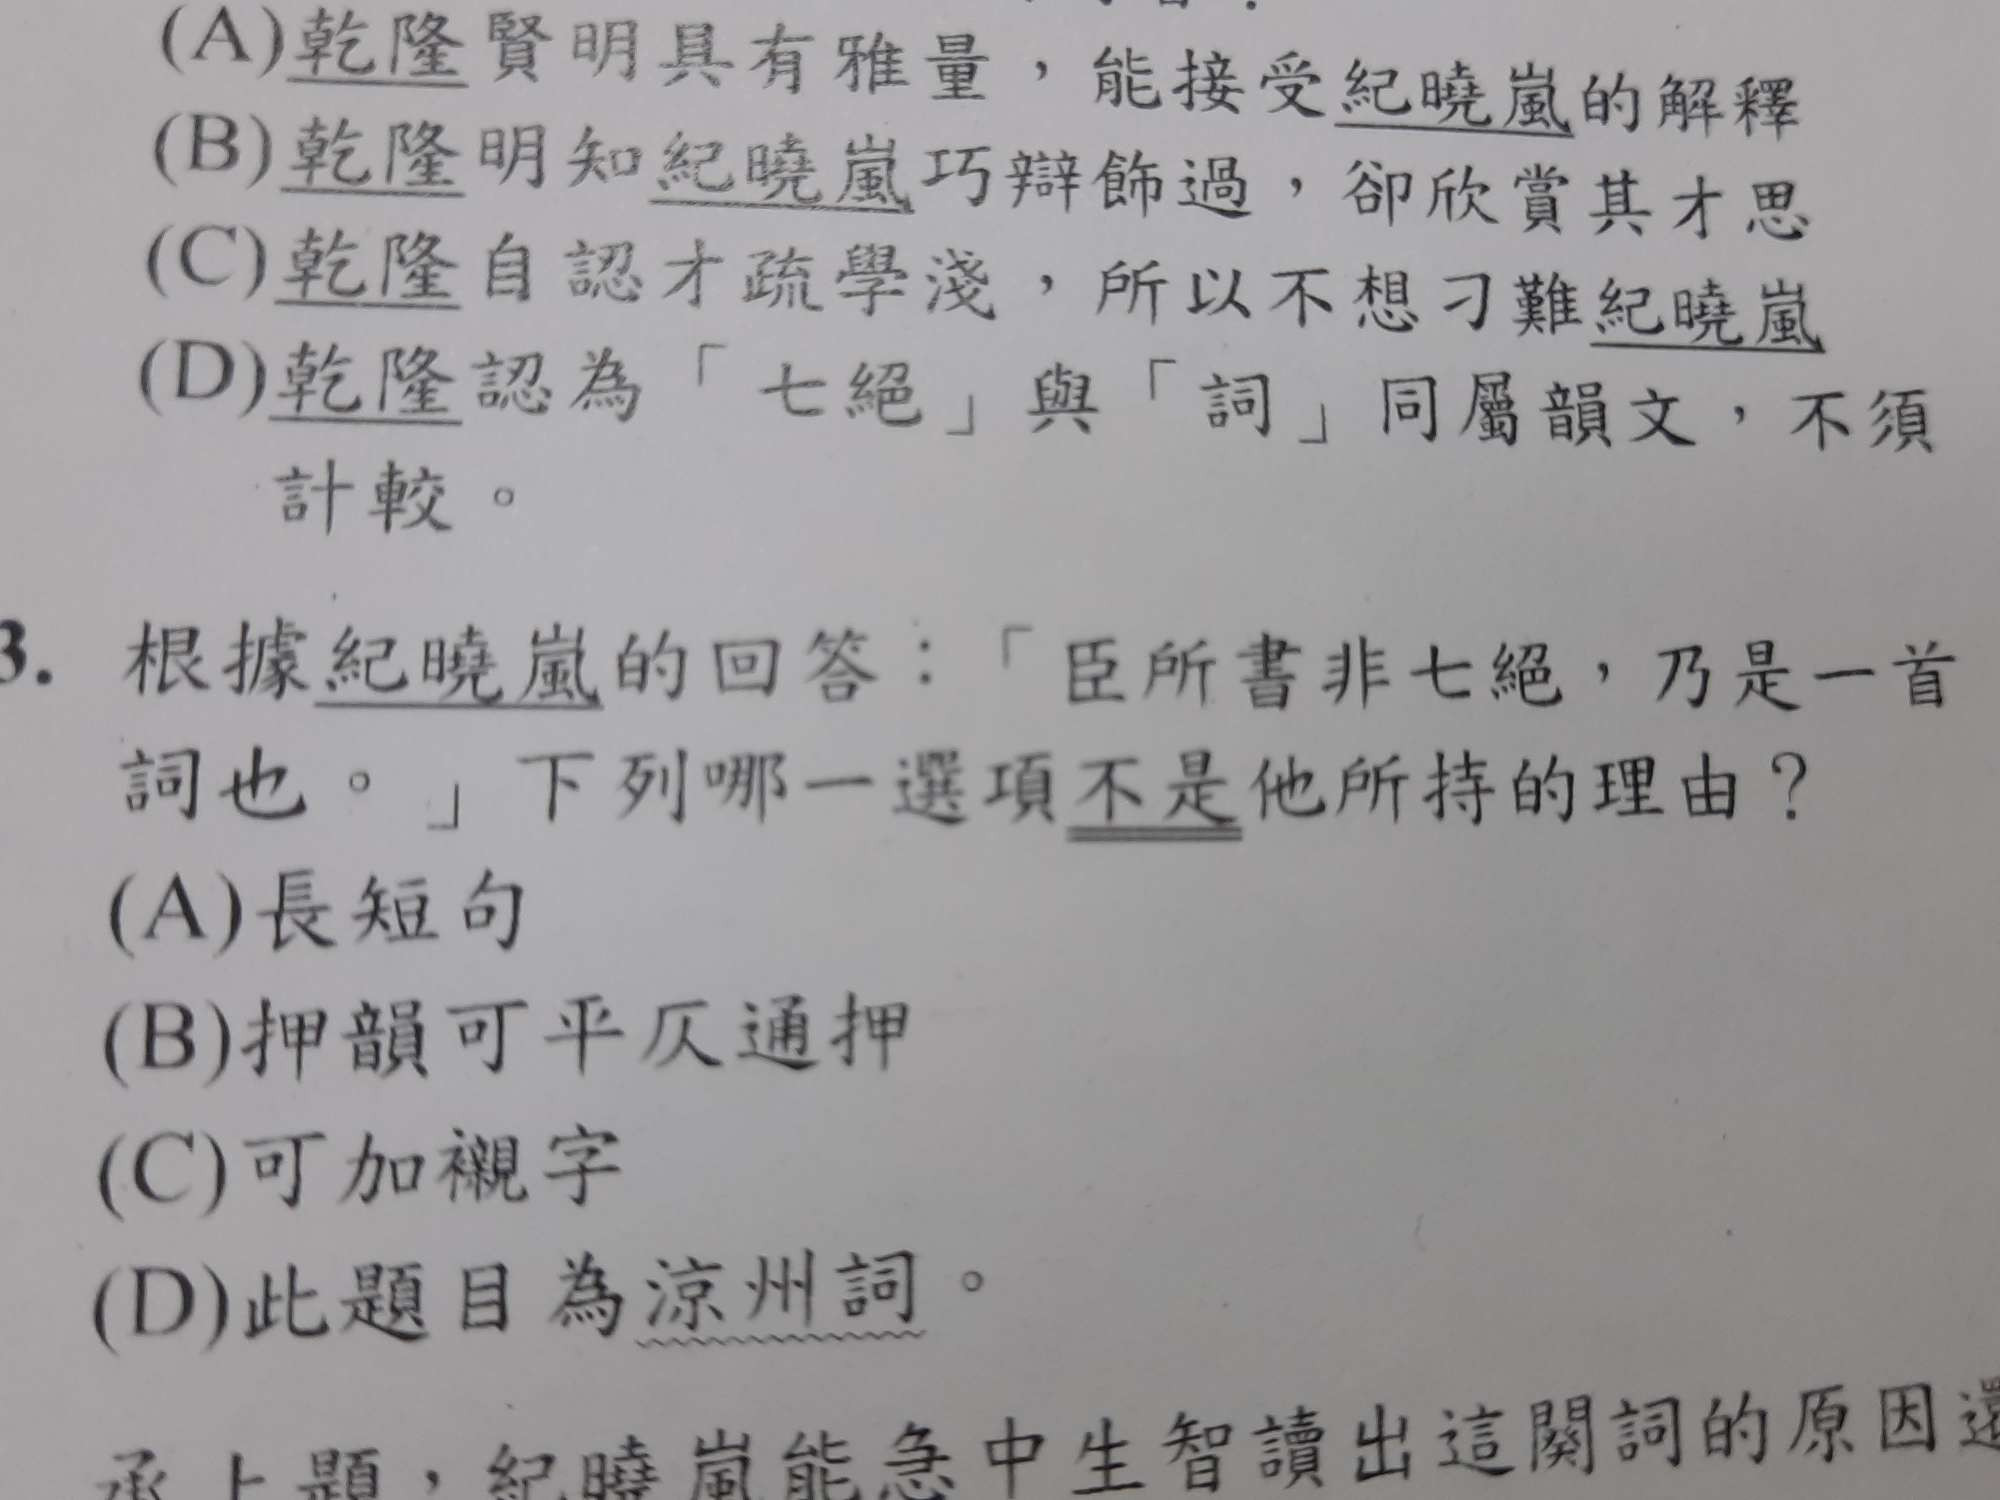 (A)乾隆賢明具有雅量，能接受紀曉嵐的解釋
(B)乾隆明知紀曉嵐巧辯飾過，卻欣賞其才思
(C)乾隆自認才疏學淺，所以不想刁難紀曉嵐
(D)乾隆認為「七絕」與「詞」同屬韻文，不須
計較。
3. 根據紀曉嵐的回答：「臣所書非七絕，乃是一首
詞也。」下列哪一選項不是他所持的理由？
(A)長短句
(B)押韻可平仄通押
(C)可加襯字
(D)此題目為涼州詞。
承上題，紀曉嵐能急中生智讀出這闋詞的原因還